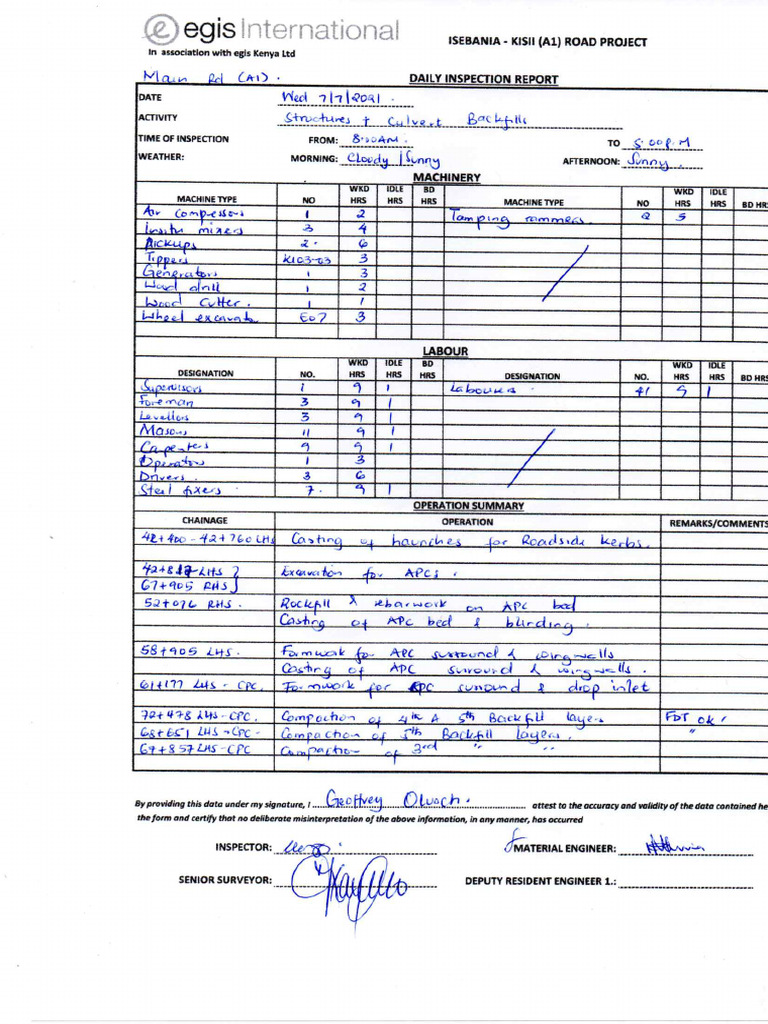 egis International
In association with egis Kenya Ltd
ISEBANIA - KISII (A1) ROAD PROJECT
Main Rd (A1).
DAILY INSPECTION REPORT
DATE Wed 7/7/2021.
ACTIVITY Structures + Culvert Backfills
TIME OF INSPECTION FROM: 8:00AM. TO 5:00P.M
WEATHER: MORNING: Cloudy /Sunny AFTERNOON: Sunny
MACHINERY
MACHINE TYPE NO WKD HRS IDLE HRS BD HRS MACHINE TYPE NO WKD HRS IDLE HRS BD HRS
Air Compressors 1 2 Tamping rammers. 2 5
Insitu mixers 3 4
Pickups 2. 6
Tippers K103-03 3
Generators 1 3
Wood drill 1 2
Wood Cutter. 1 1
Wheel excavato E07 3
LABOUR
DESIGNATION NO. WKD HRS IDLE HRS BD HRS DESIGNATION NO. WKD HRS IDLE HRS BD HRS
Supervisors 1 9 1 Labourers. 41 9 1
Foreman 3 9 1
Levellors 3 9 1
Masons 11 9 1
Carpenters 9 9 1
Operators 1 3
Drivers. 3 6
Steel fixers 7. 9 1
OPERATION SUMMARY
CHAINAGE OPERATION REMARKS/COMMENTS
42+400-42+760 LHS Casting of haunches for Roadside kerbs.
42+817 LHS } Excavation for APCs.
67+905 RHS }
52+076 RHS. Rockfill & rebarwork on APC bed
Casting of APC bed & blinding.
58+905 LHS. Formwork for APC surround & wingwalls
Casting of APC surround & wingwalls.
61+177 LHS-CPC. Formwork for APC surround & drop inlet
72+478 LHS-CPC. Compaction of 4th & 5th Backfill layers FDT ok!
68+651 LHS-CPC- Compaction of 5th Backfill layers. "
67+857 LHS-CPC Compaction of 3rd " "
By providing this data under my signature, I Geoffrey Oluoch. attest to the accuracy and validity of the data contained he
the form and certify that no deliberate misinterpretation of the above information, in any manner, has occurred
INSPECTOR: MATERIAL ENGINEER:
SENIOR SURVEYOR: DEPUTY RESIDENT ENGINEER 1.: